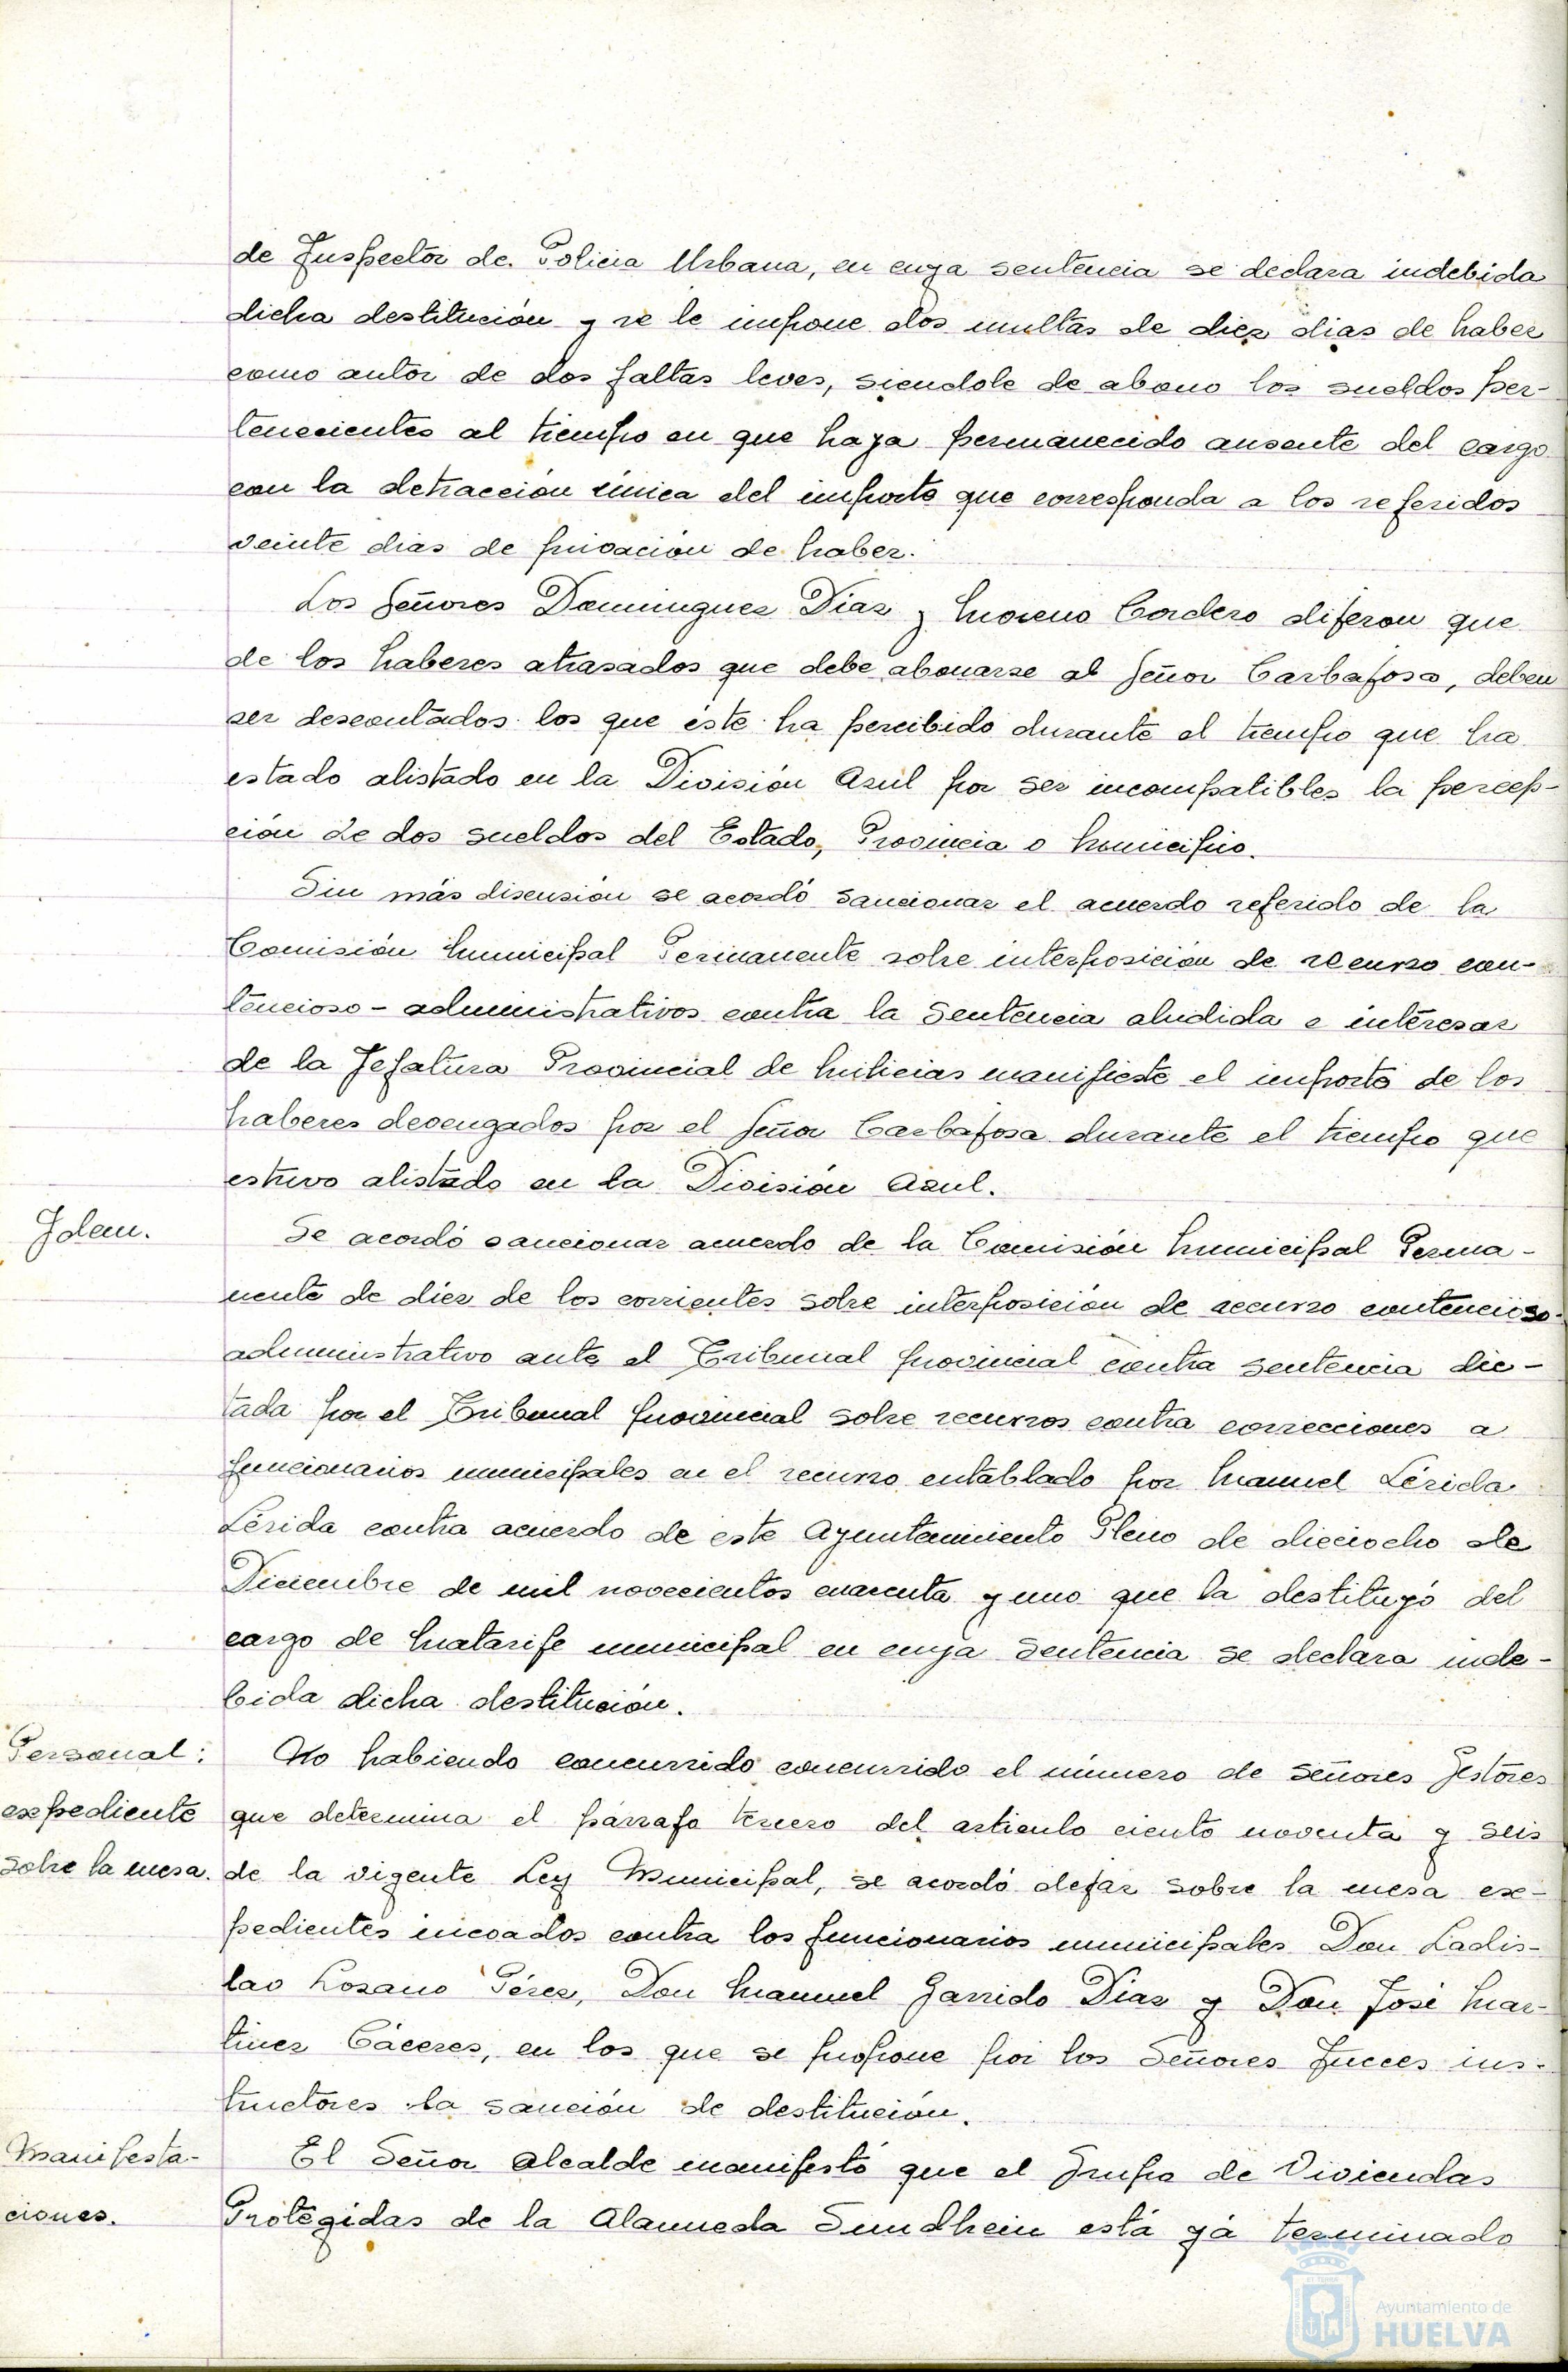 de Inspector de Policia Urbana, en cuya sentencia se declara indebida
dicha destitución y se le impone dos multas de diez dias de haber
como autor de dos faltas leves, siendole de abono los sueldos per-
tenecientes al tiempo en que haya permanecido ausente del cargo
con la detracción única del importe que corresponda a los referidos
veinte dias de privación de haber.
Los Señores Dominguez Diaz y Moreno Cordero dijeron que
de los haberes atrasados que debe abonarse al Señor Carbajosa, deben
ser descontados los que éste ha percibido durante el tiempo que ha
estado alistado en la División Azul por ser incompatibles la percep-
ción de dos sueldos del Estado, Provincia o Municipio.
Sin más discusión se acordó sancionar el acuerdo referido de la
Comisión Municipal Permanente sobre interposición de recurso con-
tencioso-administrativos contra la sentencia aludida e interesar
de la Jefatura Provincial de Milicias manifieste el importe de los
haberes devengados por el Señor Carbajosa durante el tiempo que
estuvo alistado en la División Azul.
Idem.
Se acordó sancionar acuerdo de la Comisión Municipal Perma-
nente de diez de los corrientes sobre interposición de recurso contencioso-
administrativo ante el Tribunal provincial contra sentencia dic-
tada por el Tribunal provincial sobre recursos contra correcciones a
funcionarios municipales en el recurso entablado por Manuel Lérida
Lérida contra acuerdo de este Ayuntamiento Pleno de dieciocho de
Diciembre de mil novecientos cuarenta y uno que la destituyó del
cargo de Matarife municipal en cuya sentencia se declara inde-
bida dicha destitución.
Personal:
expediente
sobre la mesa.
No habiendo concurrido concurrido el número de señores Gestores
que determina el párrafo tercero del articulo ciento noventa y seis
de la vigente Ley Municipal, se acordó dejar sobre la mesa ex-
pedientes incoados contra los funcionarios municipales Don Ladis-
lao Lozano Pérez, Don Manuel Garrido Diaz y Don José Mar-
tinez Cáceres, en los que se propone por los Señores Jueces ins-
tructores la sanción de destitución.
Manifesta-
ciones.
El Señor Alcalde manifestó que el Grupo de Viviendas
Protegidas de la Alameda Sundhein está yá terminado
Ayuntamiento de
HUELVA